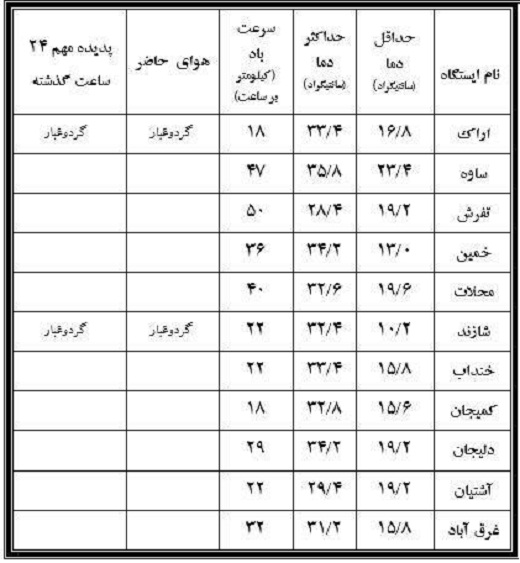 نام ایستگاه حداقل دما (سانتیگراد) حداکثر دما (سانتیگراد) سرعت باد (کیلومتر بر ساعت) هوای حاضر پدیده مهم ۲۴ ساعت گذشته
اراک ۱۶/۸ ۳۳/۴ ۱۸ گردوغبار گردوغبار
ساوه ۲۳/۴ ۳۵/۸ ۴۷
تفرش ۱۹/۲ ۲۸/۴ ۵۰
خمین ۱۳/۰ ۳۴/۲ ۳۶
محلات ۱۹/۶ ۳۲/۶ ۴۰
شازند ۱۰/۲ ۳۲/۴ ۲۲ گردوغبار گردوغبار
خنداب ۱۵/۸ ۳۳/۴ ۲۲
کمیجان ۱۵/۶ ۳۲/۸ ۱۸
دلیجان ۱۹/۲ ۳۴/۲ ۲۹
آشتیان ۱۹/۲ ۲۹/۴ ۲۲
غرق آباد ۱۵/۸ ۳۱/۲ ۳۲